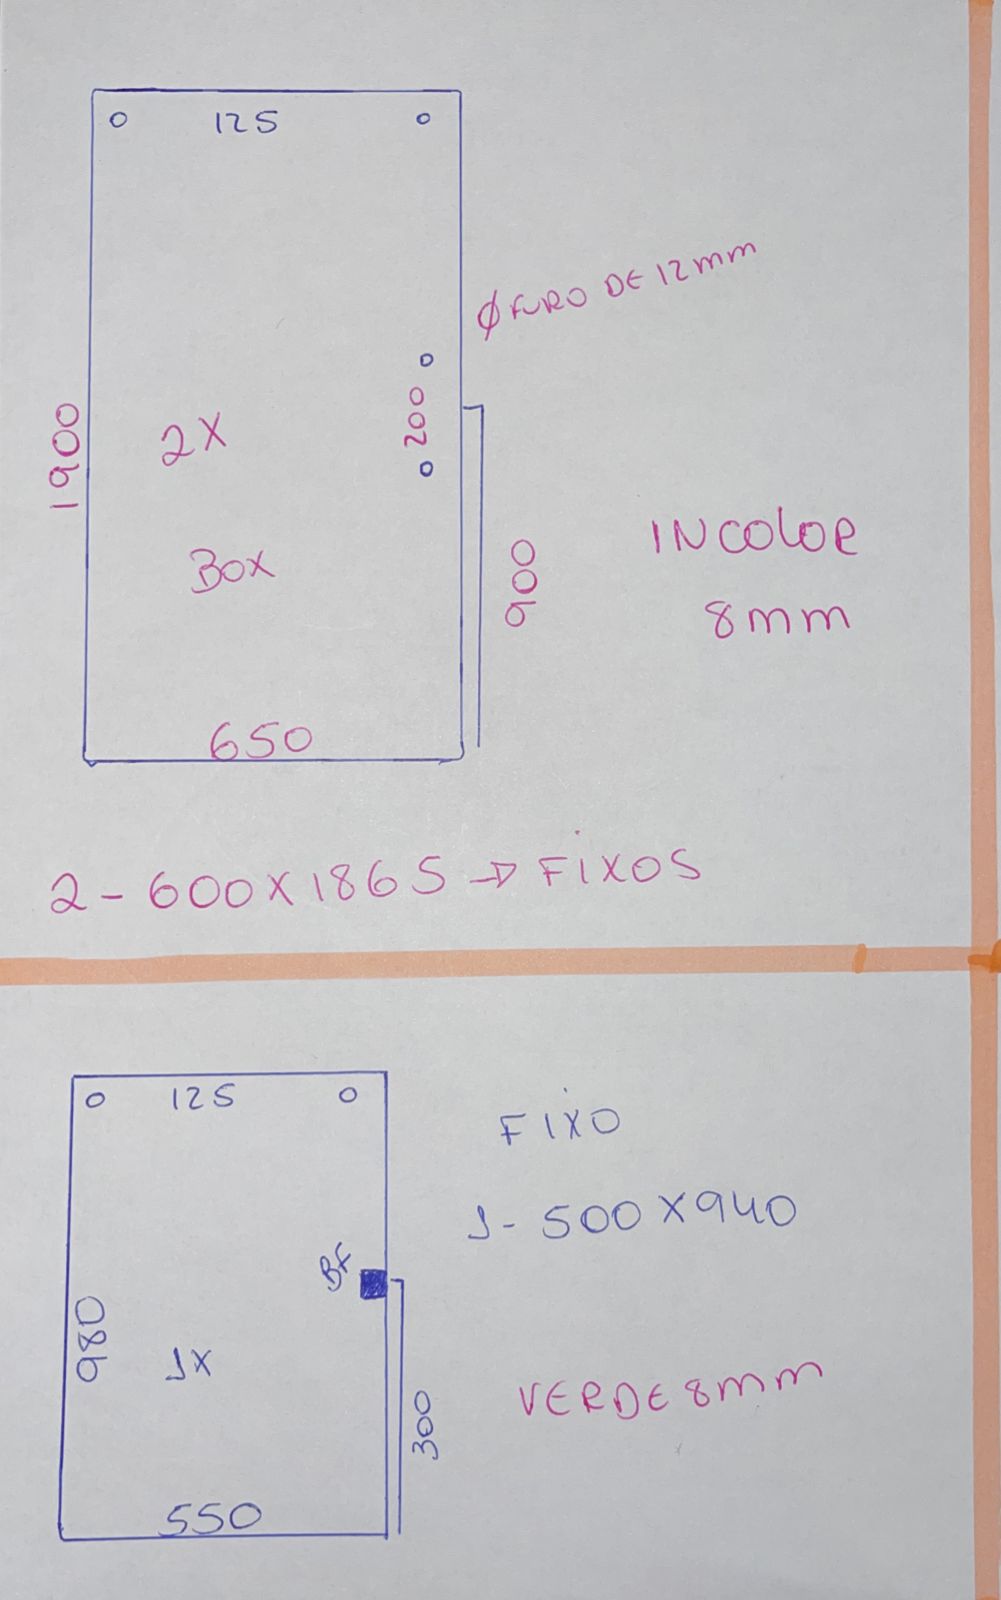 125
Ø FURO DE 12mm
200
1900
2X
BOX
900
INCOLOR
8mm
650
2-600X1865 → FIXOS
125
FIXO
1-500X940
BF
980
1X
300
VERDE 8mm
550